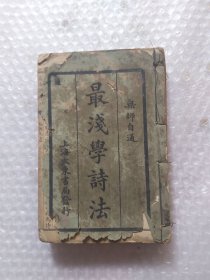 無師自通
最淺學詩法
上海大東書局發行